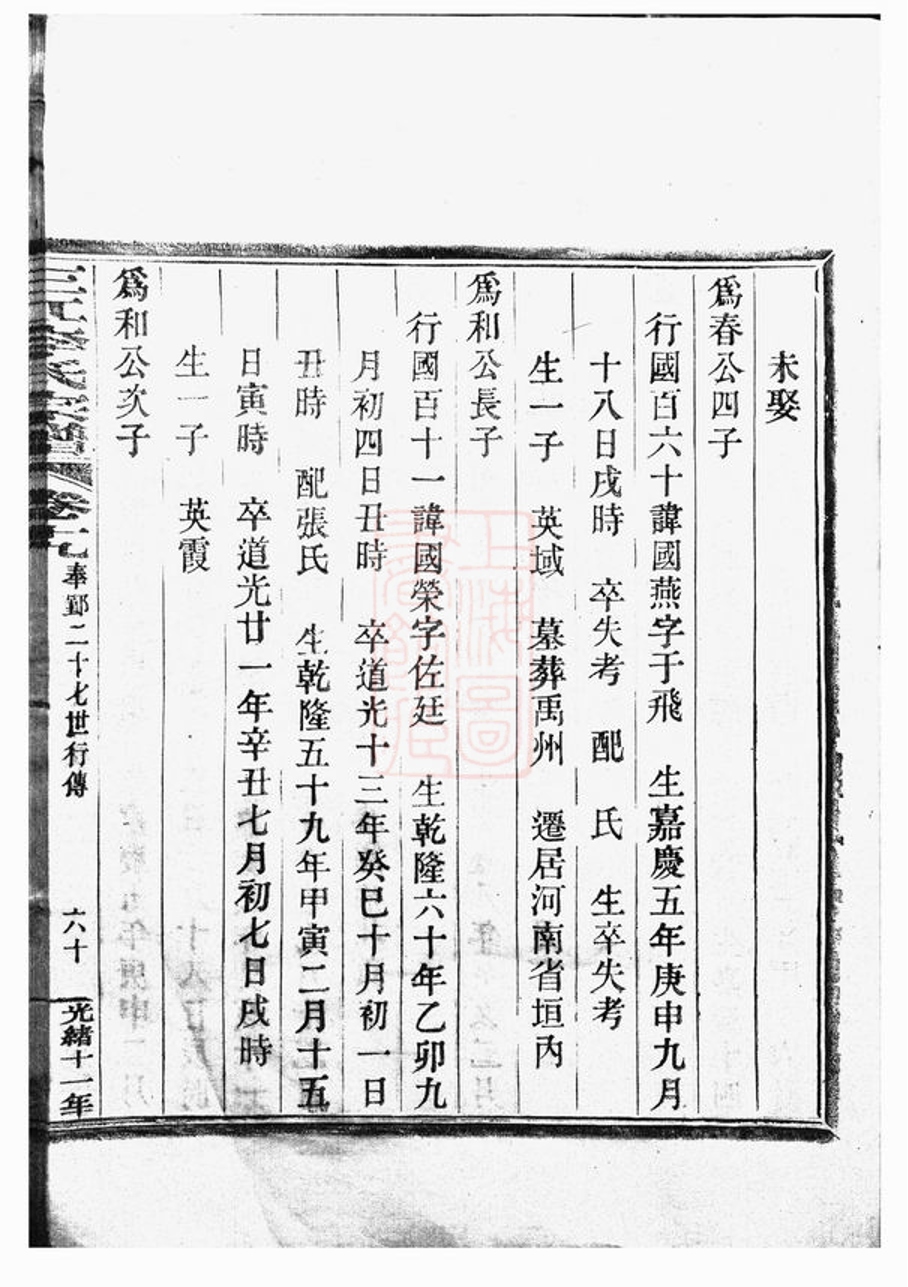 未娶
爲春公四子
行國百六十諱國燕字于飛 生嘉慶五年庚申九月
十八日戌時 卒失考 配 氏 生卒失考
生一子 英域 墓葬禹州 遷居河南省垣內
爲和公長子
行國百十一諱國榮字佐廷 生乾隆六十年乙卯九
月初四日丑時 卒道光十三年癸巳十月初一日
丑時 配張氏 生乾隆五十九年甲寅二月十五
日寅時 卒道光廿一年辛丑七月初七日戌時
生一子 英霞
爲和公次子
三江李氏宗譜 卷十九 奉鄞二十七世行傳 六十 光緒十一年
上海圖
書館藏